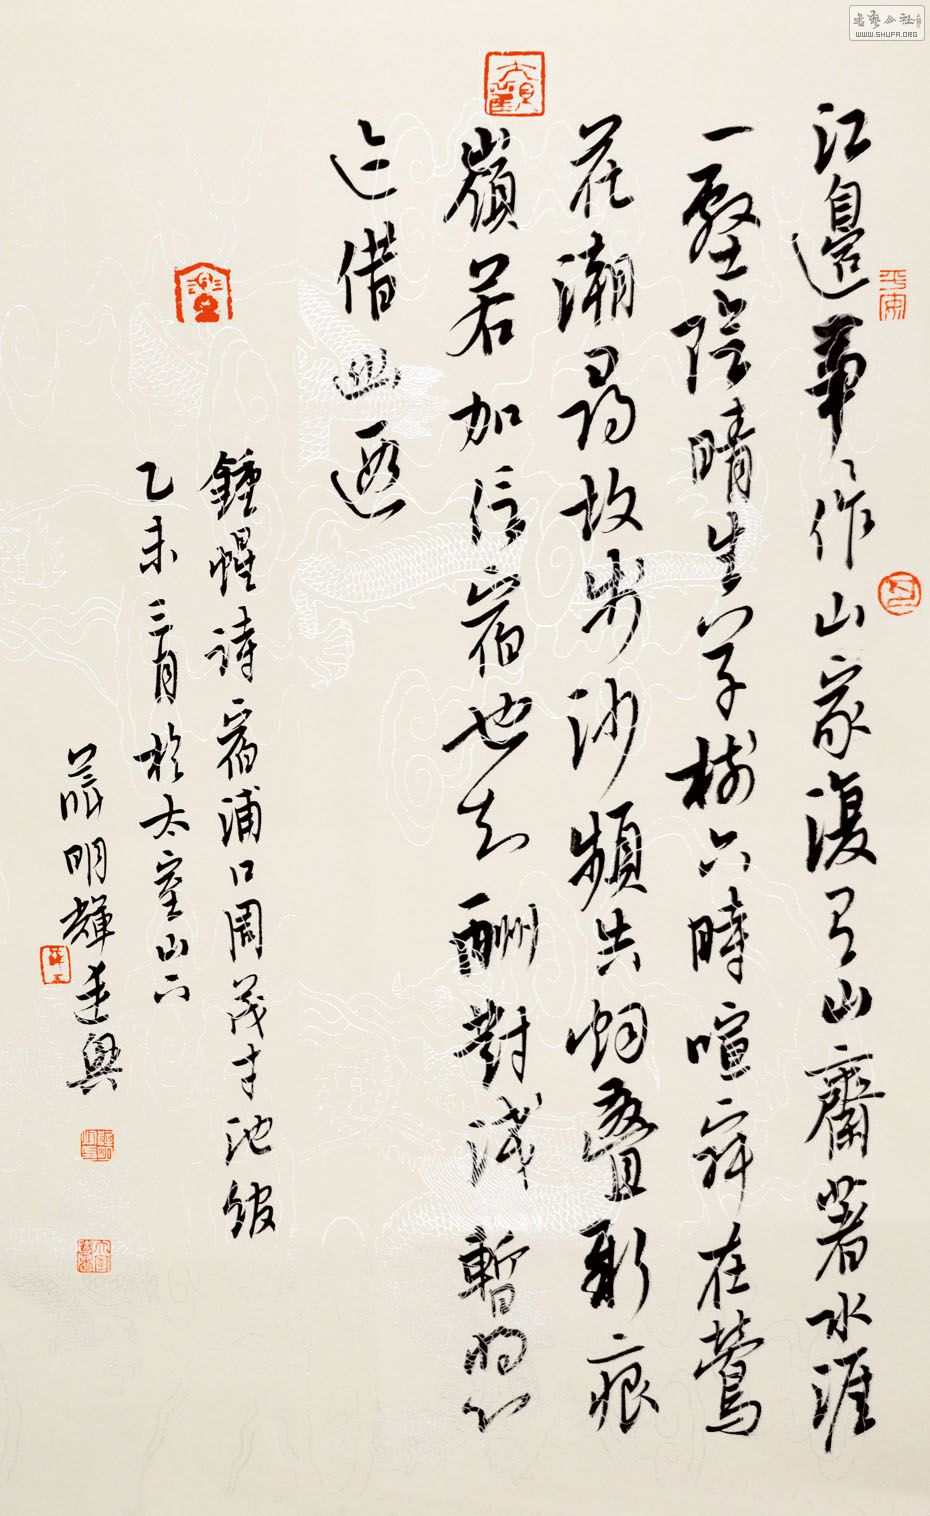 書藝公社
WWW.SHUFA.ORG
大觀
江邊事〻作山家復有山齋著水涯
一壑陰晴生草樹六時喧寂在鶯
花潮尋故步沙頻失烟疊新痕
嶺若加信宿也知酬對淺暫將心
迹借幽遐
鍾惺詩宿浦口周茂才池館
乙未三月於太室山下
明輝